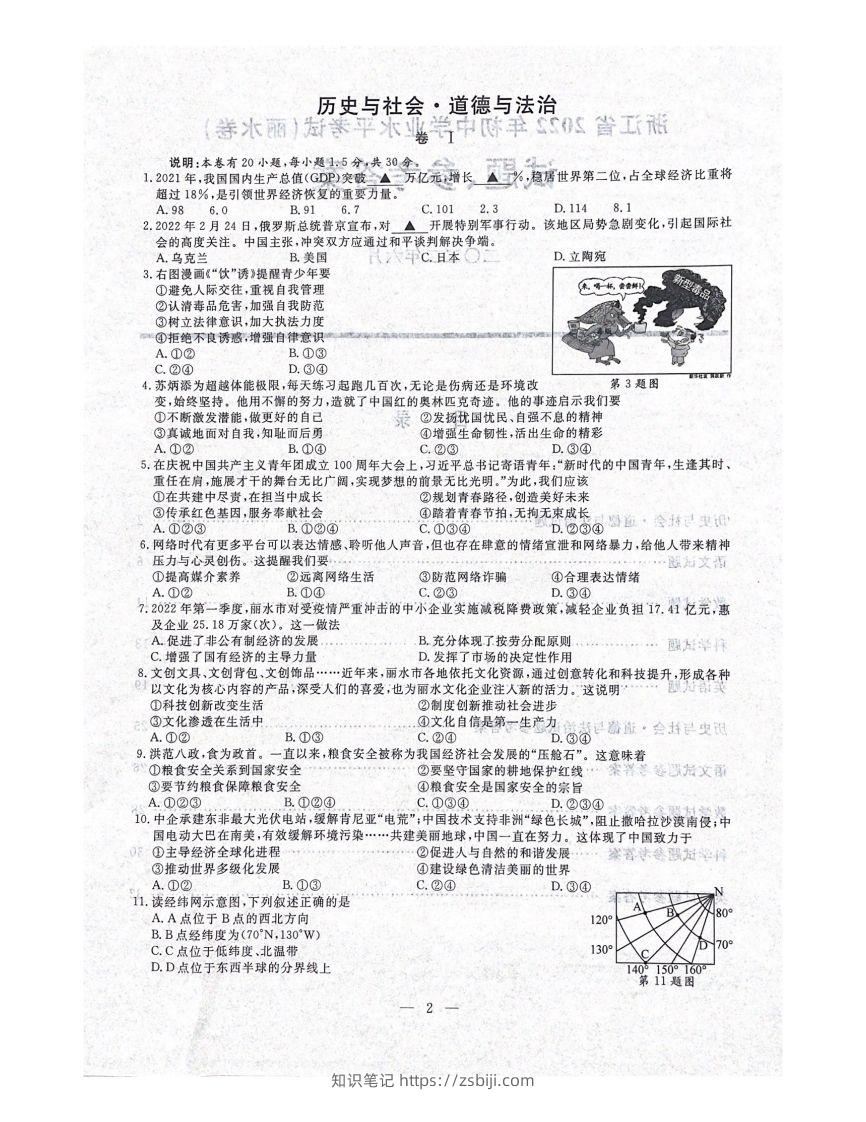 历史与社会·道德与法治
卷 I
说明:本卷有20小题,每小题1.5分,共30分。
1.2021年,我国国内生产总值(GDP)突破 ▲ 万亿元,增长 ▲ %,稳居世界第二位,占全球经济比重将
超过18%,是引领世界经济恢复的重要力量。
A.98 6.0 B.91 6.7 C.101 2.3 D.114 8.1
2.2022年2月24日,俄罗斯总统普京宣布,对 ▲ 开展特别军事行动。该地区局势急剧变化,引起国际社
会的高度关注。中国主张,冲突双方应通过和平谈判解决争端。
A.乌克兰 B.美国 C.日本 D.立陶宛
3.右图漫画《“饮”诱》提醒青少年要
①避免人际交往,重视自我管理
②认清毒品危害,加强自我防范
③树立法律意识,加大执法力度
④拒绝不良诱惑,增强自律意识
A.①② B.①③
C.②④ D.③④
来,喝一杯,尝尝鲜!
新型毒品
第3题图
4.苏炳添为超越体能极限,每天练习起跑几百次,无论是伤病还是环境改
变,始终坚持。他用不懈的努力,造就了中国红的奥林匹克奇迹。他的事迹启示我们要
①不断激发潜能,做更好的自己 ②发扬忧国忧民、自强不息的精神
③真诚地面对自我,知耻而后勇 ④增强生命韧性,活出生命的精彩
A.①② B.①④ C.②③ D.③④
5.在庆祝中国共产主义青年团成立100周年大会上,习近平总书记寄语青年:“新时代的中国青年,生逢其时、
重任在肩,施展才干的舞台无比广阔,实现梦想的前景无比光明。”为此,我们应该
①在共建中尽责,在担当中成长 ②规划青春路径,创造美好未来
③传承红色基因,服务奉献社会 ④踏着青春节拍,无拘无束成长
A.①②③ B.①②④ C.①③④ D.②③④
6.网络时代有更多平台可以表达情感、聆听他人声音,但也存在肆意的情绪宣泄和网络暴力,给他人带来精神
压力与心灵创伤。这提醒我们要
①提高媒介素养 ②远离网络生活 ③防范网络诈骗 ④合理表达情绪
A.①② B.①④ C.②③ D.③④
7.2022年第一季度,丽水市对受疫情严重冲击的中小企业实施减税降费政策,减轻企业负担17.41亿元,惠
及企业25.18万家(次)。这一做法
A.促进了非公有制经济的发展 B.充分体现了按劳分配原则
C.增强了国有经济的主导力量 D.发挥了市场的决定性作用
8.文创文具、文创背包、文创饰品……近年来,丽水市各地依托文化资源,通过创意转化和科技提升,形成各种
以文化为核心内容的产品,深受人们的喜爱,也为丽水文化企业注入新的活力。这说明
①科技创新改变生活 ②制度创新推动社会进步
③文化渗透在生活中 ④文化自信是第一生产力
A.①② B.①③ C.②④ D.③④
9.洪范八政,食为政首。一直以来,粮食安全被称为我国经济社会发展的“压舱石”。这意味着
①粮食安全关系到国家安全 ②要坚守国家的耕地保护红线
③要节约粮食保障粮食安全 ④粮食安全是国家安全的宗旨
A.①②③ B.①②④ C.①③④ D.②③④
10.中企承建东非最大光伏电站,缓解肯尼亚“电荒”;中国技术支持非洲“绿色长城”,阻止撒哈拉沙漠南侵;中
国电动大巴在南美,有效缓解环境污染……共建美丽地球,中国一直在努力。这体现了中国致力于
①主导经济全球化进程 ②促进人与自然的和谐发展
③推动世界多级化发展 ④建设绿色清洁美丽的世界
A.①② B.①③ C.②④ D.③④
11.读经纬网示意图,下列叙述正确的是
A.A点位于B点的西北方向
B.B点经纬度为(70°N,130°W)
C.C点位于低纬度、北温带
D.D点位于东西半球的分界线上
N
A B 80°
120°
D 70°
130° C
140° 150° 160°
第11题图
— 2 —
知识笔记 https://zsbiji.com